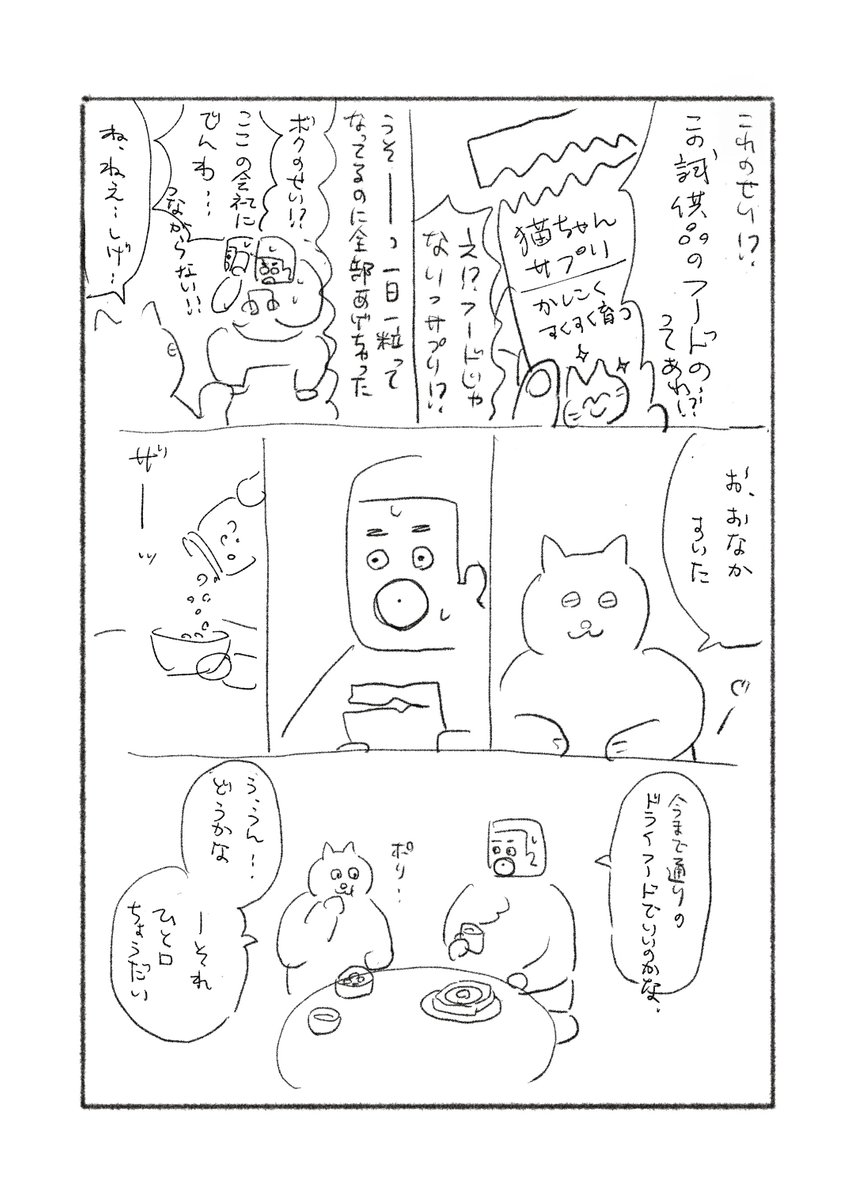 これのせい!?
この試供品のフードの
ってあれ!?
猫ちゃん
サプリ
かしこく
すくすく育つ
え!?フードじゃ
ないっサプリ!?
うそーーっ一日一粒って
なってるのに全部あげちゃった
ボクのせい!?
ここの会社に
でんわ…
つながらない!!
ね、ねえ…しげ…
お、おなか
すいた
ぐー
ザー
ッ
今まで通りの
ドライフードでいいのかな、
ポリ…
う、うん…
どうかな
ーそれ
ひと口
ちょうだい